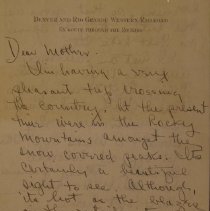 DENVER AND RIO GRANDE WESTERN RAILROAD
SCENICALLY THROUGH THE ROCKIES
Dear Mother:-
I'm having a very
pleasant trip crossing
the country. At the present
time were in the Rocky
Mountains amongst the
snow covered peaks. Its
certainly a beautiful
sight to see. Although,
its hot as the blazes